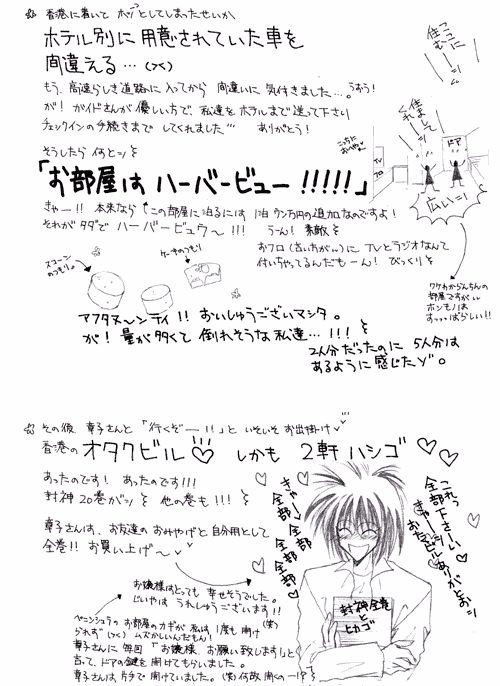 ☆ 香港に着いて ホッとしてしまったせいか
ホテル別に用意されていた車を
間違える…(つく)
もう、高速らしき道路に入ってから 間違いに気付きました…。うすう!
が! ガイドさんが優しい方で、私達をホテルまで送って下さり
チェックインの手続きまで してくれました''' ありがとう!
そうしたら 何とッ
「お部屋は ハーバービュー !!!!!」
きゃー!! 本来なら この部屋に泊るには 1泊 ウン万円の追加なのですよ!
それが タダで ハーバービュウ〜 !!! うーん! 素敵
おフロ(さいちがい)に TVとラジオなんて
付いちゃってるんだもーん! びっくり
ここに
住むっ
住れましてっ
こっちに
おへや
TV
フロ
ドア
広いーッ
ワケわからんちんの
部屋ですがいい
ホンモノは
すっっっばらしい!!
スコーン
のつもり。
ケーキのつもり
アフタヌ〜ンティ!! おいしゅうございマシタ。
が! 量が多くて 倒れそうな私達… !!!
2人分だったのに 5人分は
あるように感じたゾ。
☆ その後 章子さんと 「行くぞー!!」と いそいそ お出掛け
香港の オタクビル♡ しかも 2軒 ハシゴ
あったのです! あったのです!!!
封神 20巻がッ 他の巻も!!!
章子さんは、お友達の おみやげと 自分用として
全巻!! お買い上げ〜
お嬢様はとっても 幸せそうでした。
じいやは うれしゅうございます!!
ペニンシュラの お部屋の カギが 私は 1度も 開け
られず(つく) ムズかしいんだもん! (笑)
章子さんに 毎回 「お嬢様、お願い致します」と
言って、ドアの鍵を 開けてもらいました。
章子さんは 片手で 開けていました。(笑) 何故 開くのー!?
きゃー
全部 全部
全部 全部
これっ
全部下さーい
きゃー
おたくビル
ありがとおーッ
封神全巻
と
ヒカゴ